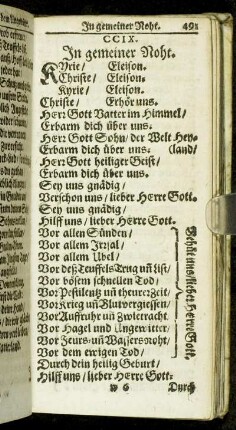 In gemeiner Noht. 491
CCIX.
In gemeiner Noht.
KYrie / Eleison.
Christe / Eleison.
Kyrie / Eleison.
Christe / Erhör uns.
HErr Gott Vatter im Himmel /
Erbarm dich über uns.
HErr Gott Sohn / der Welt Hey-
Erbarm dich über uns. (land /
HErr Gott heiliger Geist /
Erbarm dich über uns.
Sey uns gnädig /
Verschon uns / lieber HErre Gott.
Sey uns gnädig /
Hilff uns / lieber HErre Gott.
Vor allen Sünden /
Vor allem Irrsal /
Vor allem Ubel /
Vor deß Teuffels Trug uñ list /
Vor bösem schnellen Tod /
Vor Pestilenz uñ theurer Zeit /
Vor Krieg uñ Blutvergiessen /
Vor Auffruhr uñ Zwietracht.
Vor Hagel und Ungewitter /
Vor Feurs- uñ Wassersnoht /
Vor dem ewigen Tod /
Behüt uns / lieber HErre Gott.
Durch dein heilig Geburt /
Hilff uns / lieber HErre Gott.
6 Durch